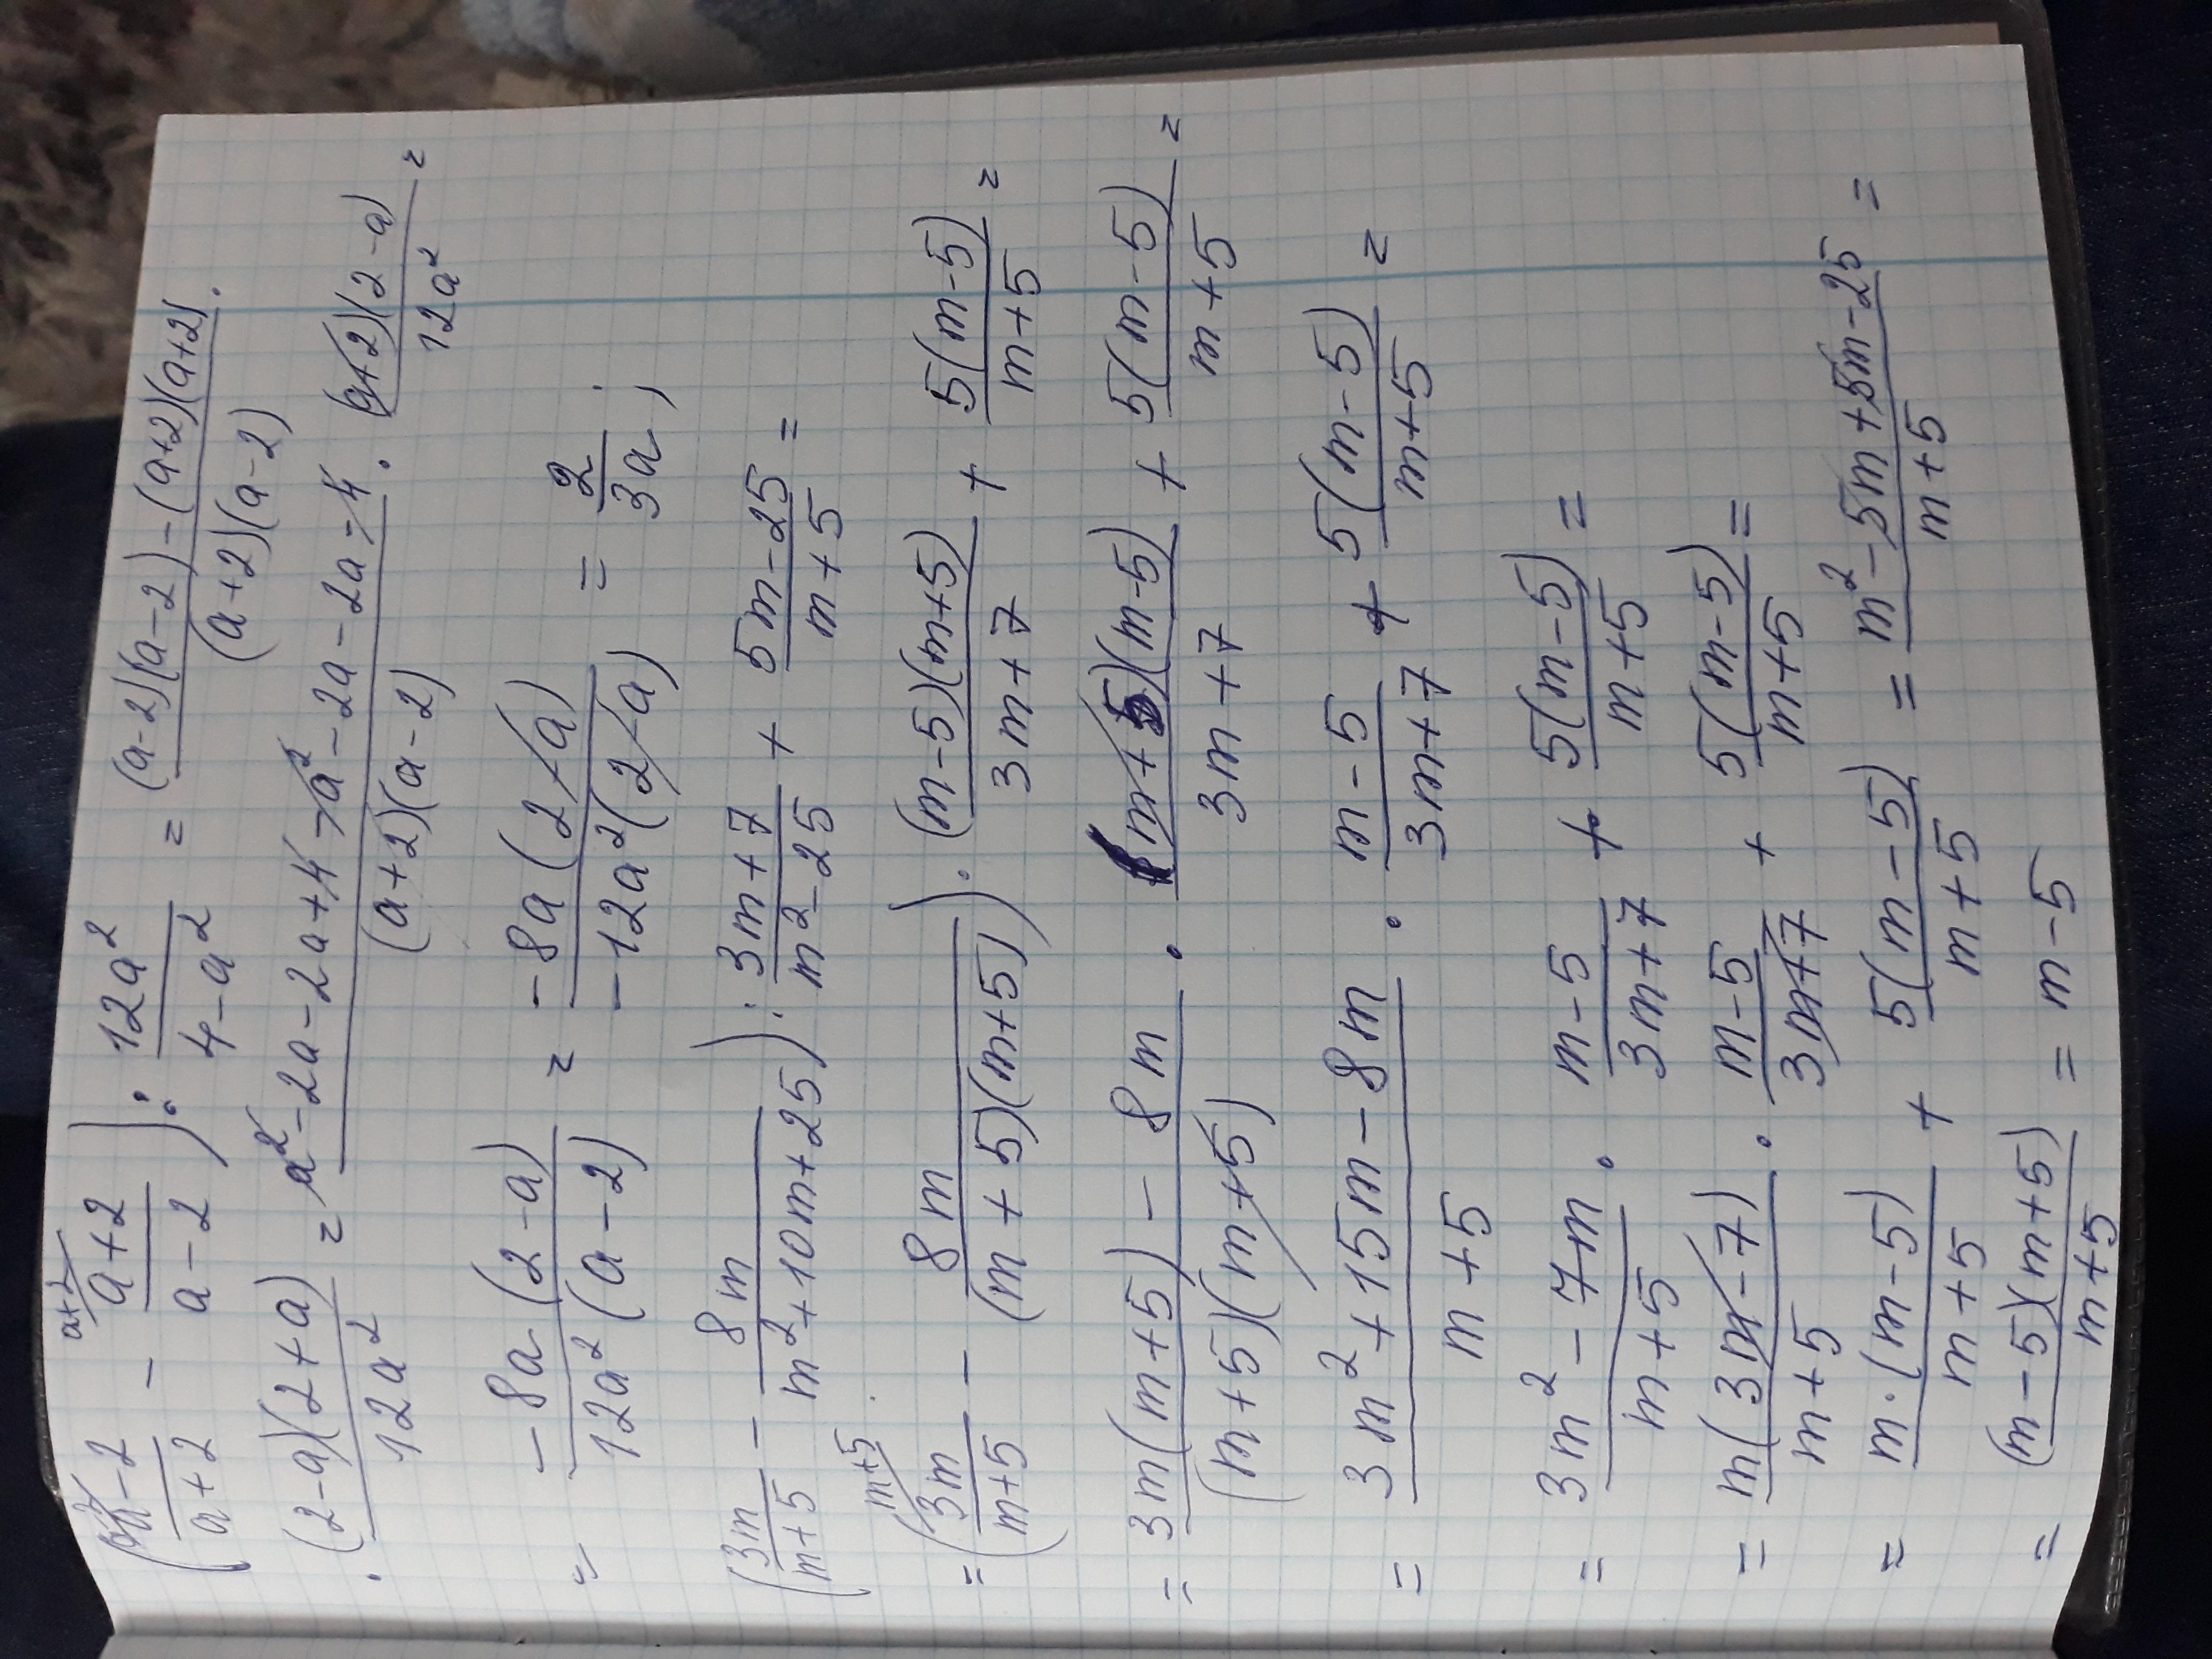 (a-2)/(a+2) - (a+2)/(a-2)) : 12a²/(4-a²) = ((a-2)(a-2)-(a+2)(a+2))/((a+2)(a-2)) ·
· (2-a)(2+a)/12a² = (a²-2a-2a+4-a²-2a-2a-4)/((a+2)(a-2)) · (a+2)(2-a)/12a² =
= -8a(2-a)/12a²(a-2) = -8a(2-a)/-12a²(2-a) = 2/3a ;
(3m/(m+5) - 8m/(m²+10m+25)) : (3m+7)/(m²-25) + (5m-25)/(m+5) =
= (3m/(m+5) - 8m/((m+5)(m+5))) · (m-5)(m+5)/(3m+7) + 5(m-5)/(m+5) =
= (3m(m+5) - 8m)/((m+5)(m+5)) · (m+5)(m-5)/(3m+7) + 5(m-5)/(m+5) =
= (3m²+15m-8m)/(m+5) · (m-5)/(3m+7) + 5(m-5)/(m+5) =
= (3m²-7m)/(m+5) · (m-5)/(3m+7) + 5(m-5)/(m+5) =
= m(3m-7)/(m+5) · (m-5)/(3m+7) + 5(m-5)/(m+5) =
= m·(m-5)/(m+5) + 5(m-5)/(m+5) = (m²-5m+5m-25)/(m+5) =
= (m-5)(m+5)/(m+5) = m-5